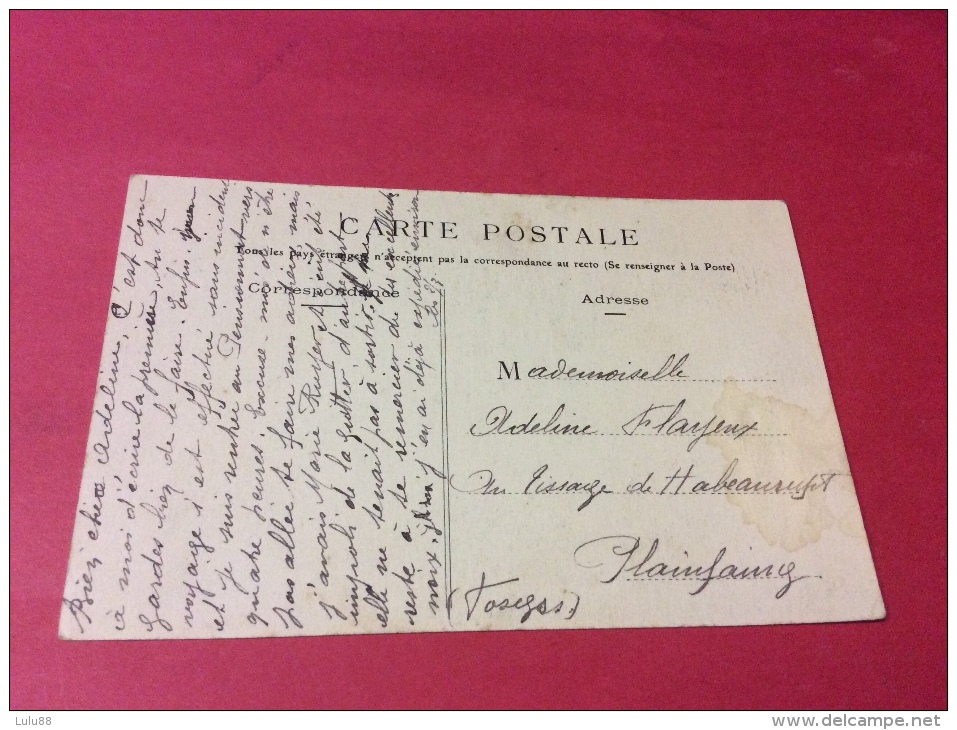 CARTE POSTALE
Tous les pays étrangers n'acceptent pas la correspondance au recto (Se renseigner à la Poste)
Correspondance
Adresse
Bien chère Adeline, C'est donc
à moi d'écrire la première, tu te
gardes bien de le faire. Enfin
voyage s'est effectué sans incident
et je suis rentrée au Pensionnat vers
quatre heures. Excuse-moi de n'être
pas allée te faire mes adieux mais
j'avais Marie c'eut été
impoli de la quitter d'autre part
elle ne tenait pas à sortir.
reste à te remercier de tes excellentes
noix. j'en ai déjà expédié
Mademoiselle
Adeline Flayeux
Au Tissage de Habeaurupt
Plainfaing
(Vosges)
Lulu88
www.delcampe.net